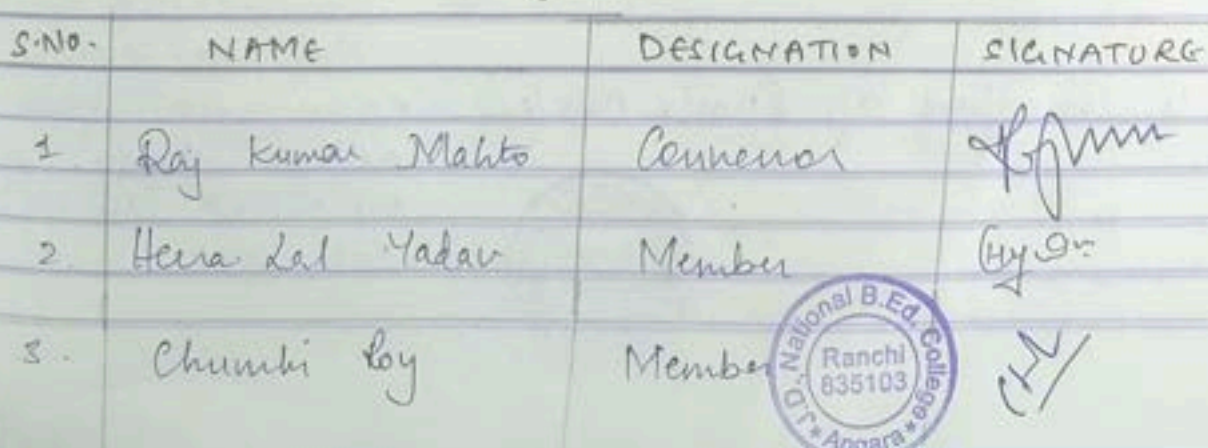 S.NO. NAME DESIGNATION SIGNATURE
1 Raj Kumar Mahto Convenor
2. Heera Lal Yadav Member
3. Chumki Roy Member
J.D. National B.Ed. College
Ranchi
835103
Angara